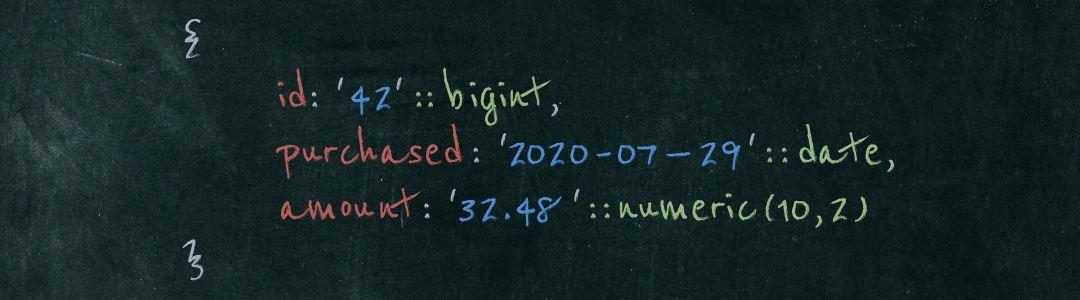 {
id: '42'::bigint,
purchased: '2020-07-29'::date,
amount: '32.48'::numeric(10,2)
}